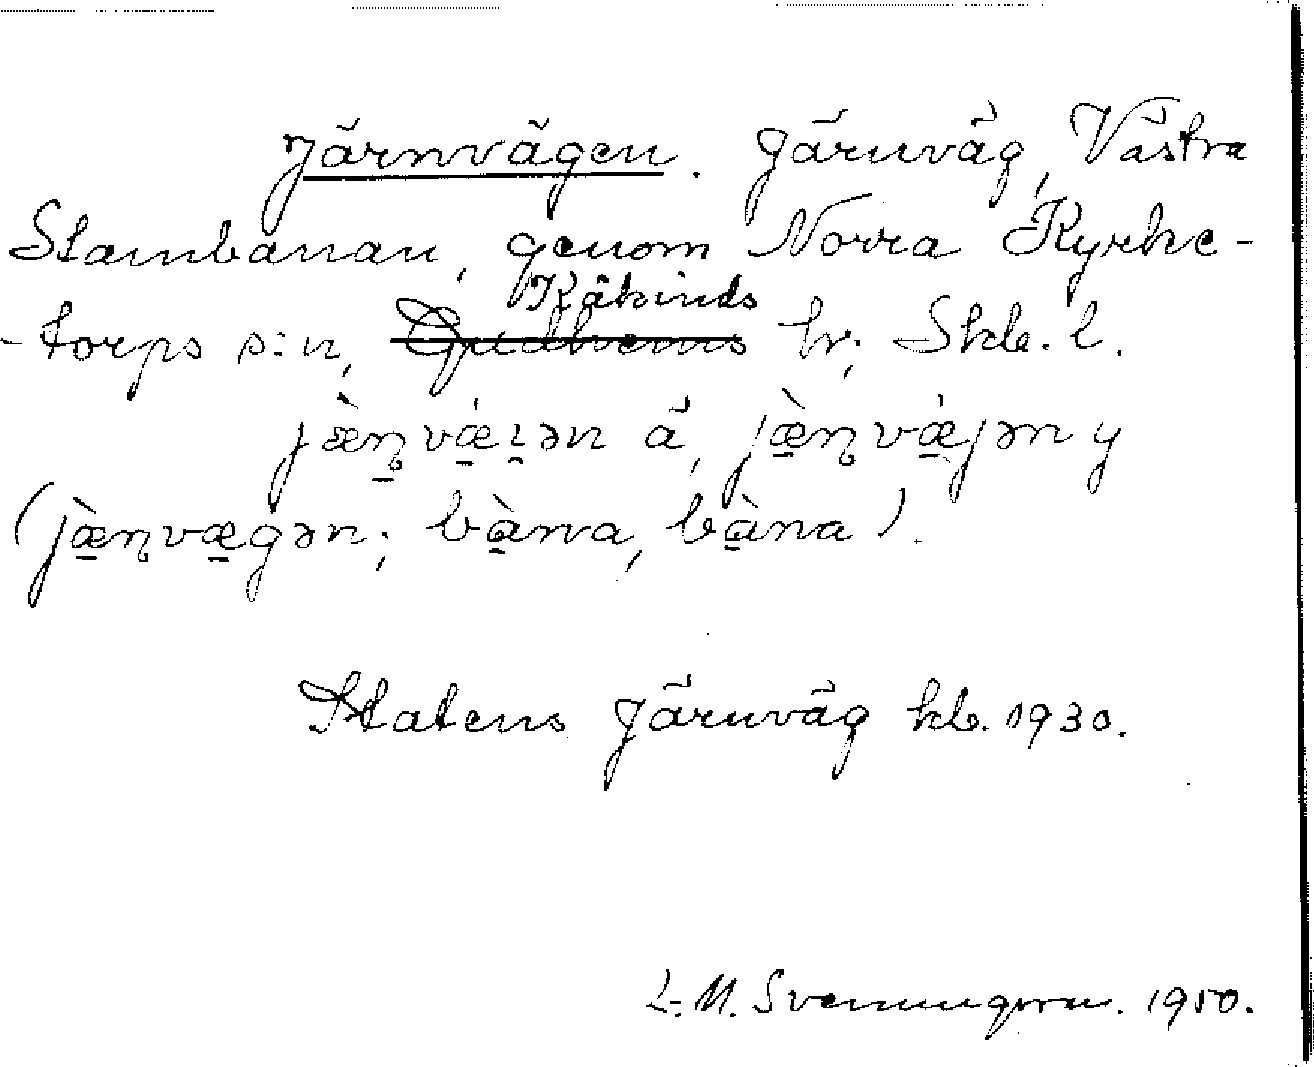 Järnvägen. Järnväg, Västra
Stambanan, genom Norra Kyrke-
-torps s:n, Kåkinds
Gudhems hr; Skbl. l.
jæ̀n̥vǽɩən ä, jæ̀n̥vǽjən y
(jæ̀n̥vægən; bàna, bàna).
Statens Järnväg kb. 1930.
L. M. Svenungsson. 1950.